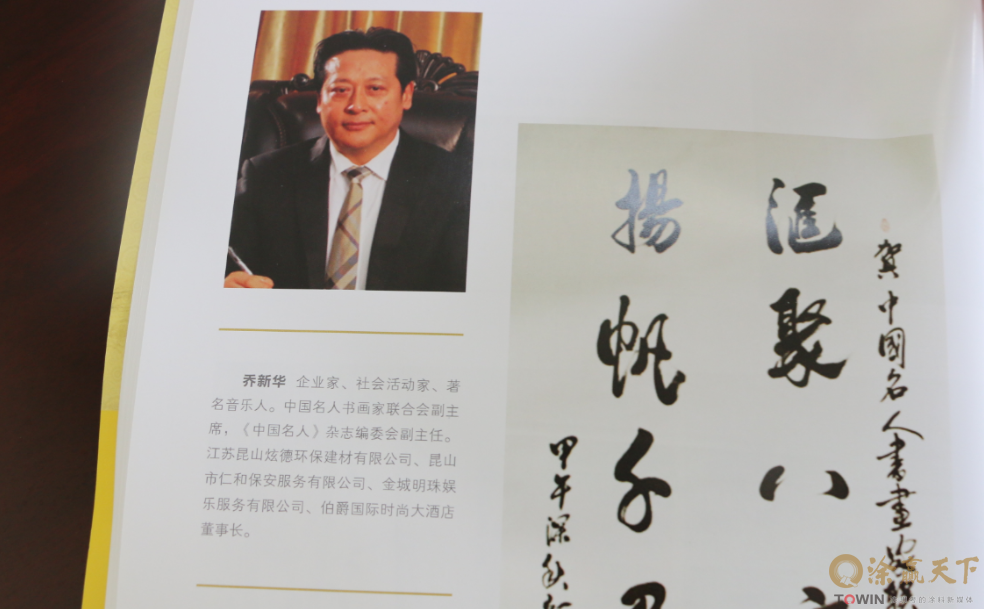 乔新华 企业家、社会活动家、著
名音乐人。中国名人书画家联合会副主
席，《中国名人》杂志编委会副主任。
江苏昆山炫德环保建材有限公司、昆山
市仁和保安服务有限公司、金城明珠娱
乐服务有限公司、伯爵国际时尚大酒店
董事长。
賀中國名人書畫
滙聚八
揚帆千
甲午深秋
涂瀛天下
TOWIN
的涂料新媒体